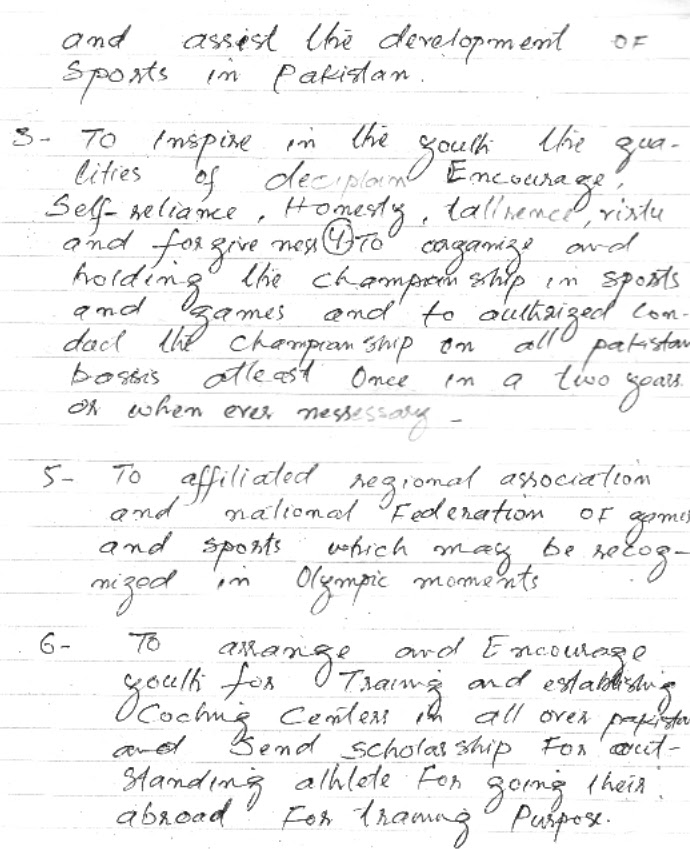 and assist the development OF
Sports in Pakistan.
3- To Inspire in the youth the qua-
lities of deciplain Encourage,
Self-reliance, Honesty, tallrence, virtu
and forgive ness ④ To organize and
holding the champion ship in sports
and games and to authrized con-
duct the champian ship on all pakistan
bassis atleast Once in a two years
or when ever nessessary -
5- To affiliated regional association
and national Federation OF games
and sports which may be recog-
nized in Olympic moments
6- To arrange and Encourage
youth for Traing and establishing
Coching Centers in all over papistan
and Send scholar ship For out-
standing athlete For going their
abroad For traning Purpose.